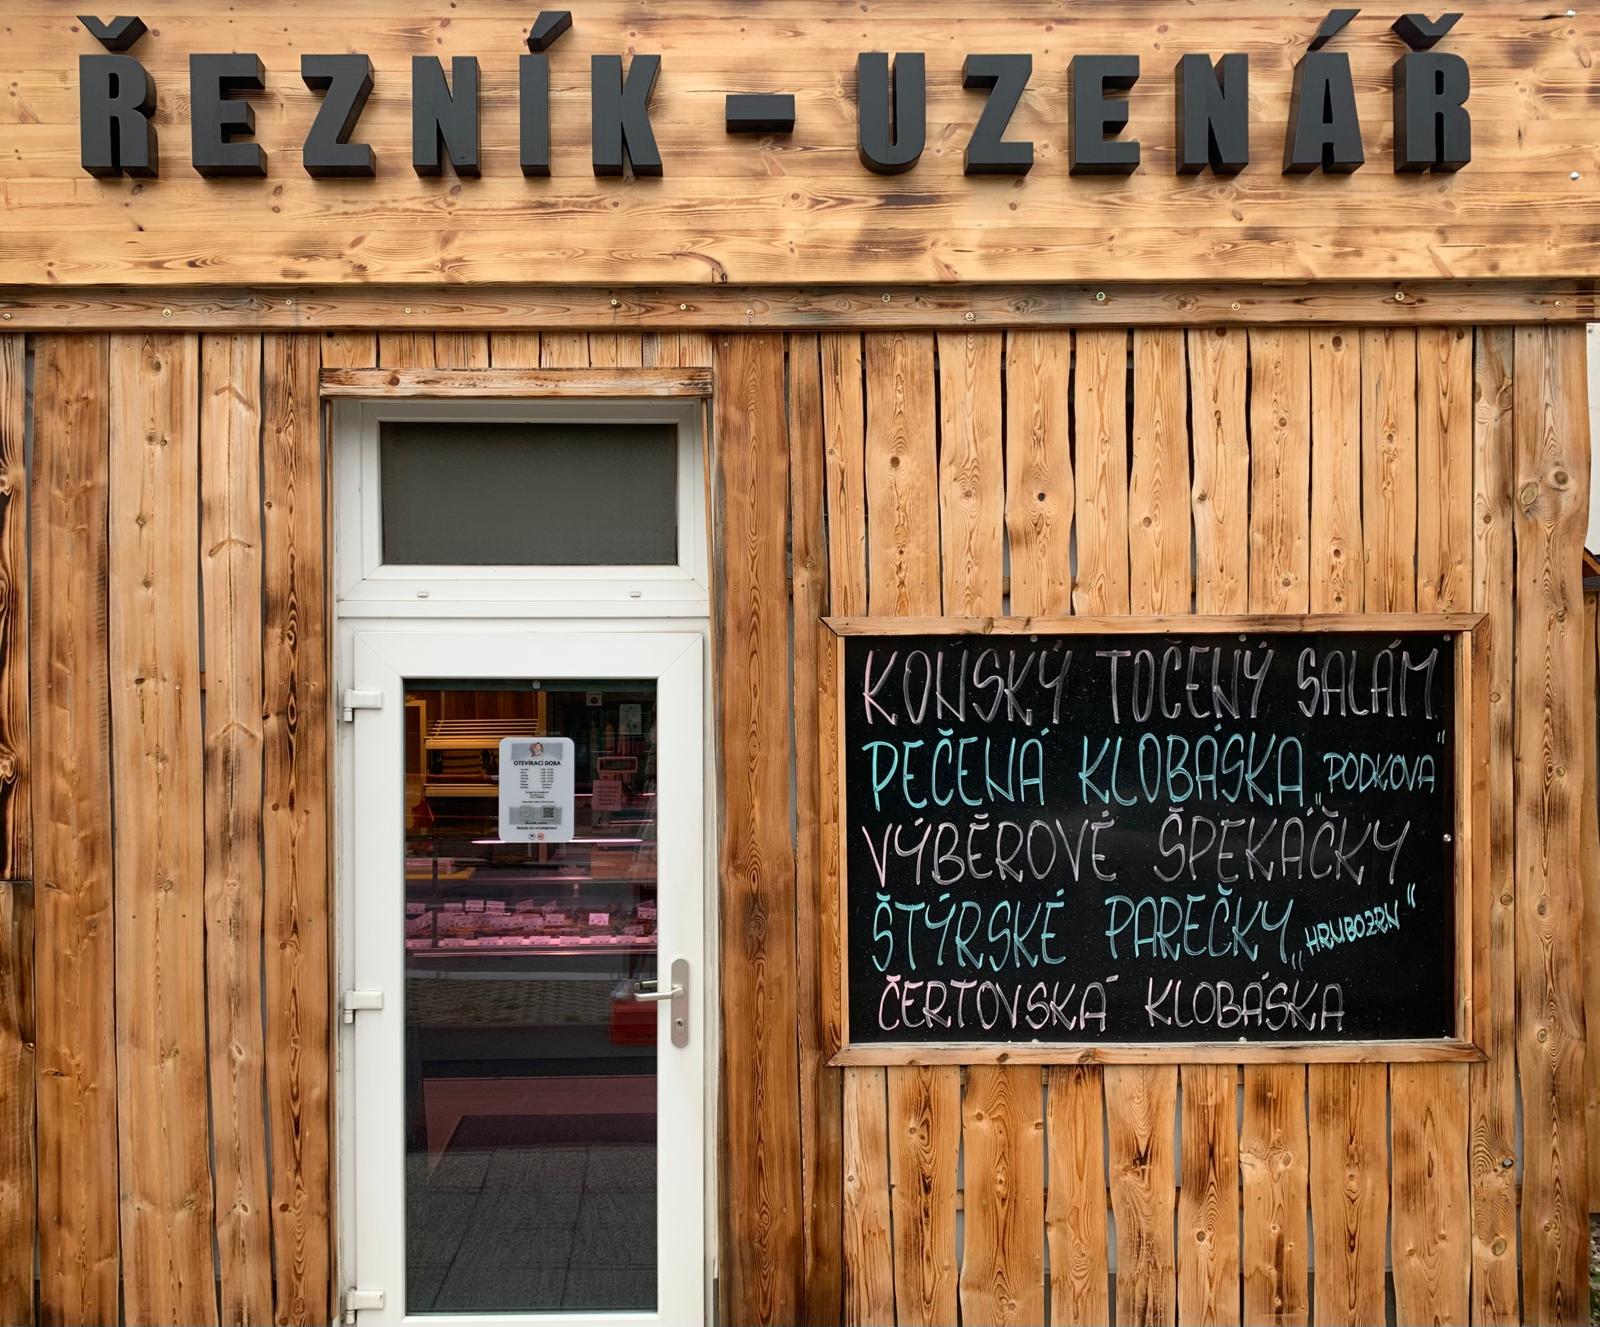 ŘEZNÍK - UZENÁŘ
KOŃSKÝ TOČENÝ SALÁM
PEČENÁ KLOBÁSKA „PODKOVA“
VÝBĚROVÉ ŠPEKÁČKY
ŠTÝRSKÉ PAREČKY „HRUBOZRN“
ČERTOVSKÁ KLOBÁSKA
OTEVÍRACÍ DOBA